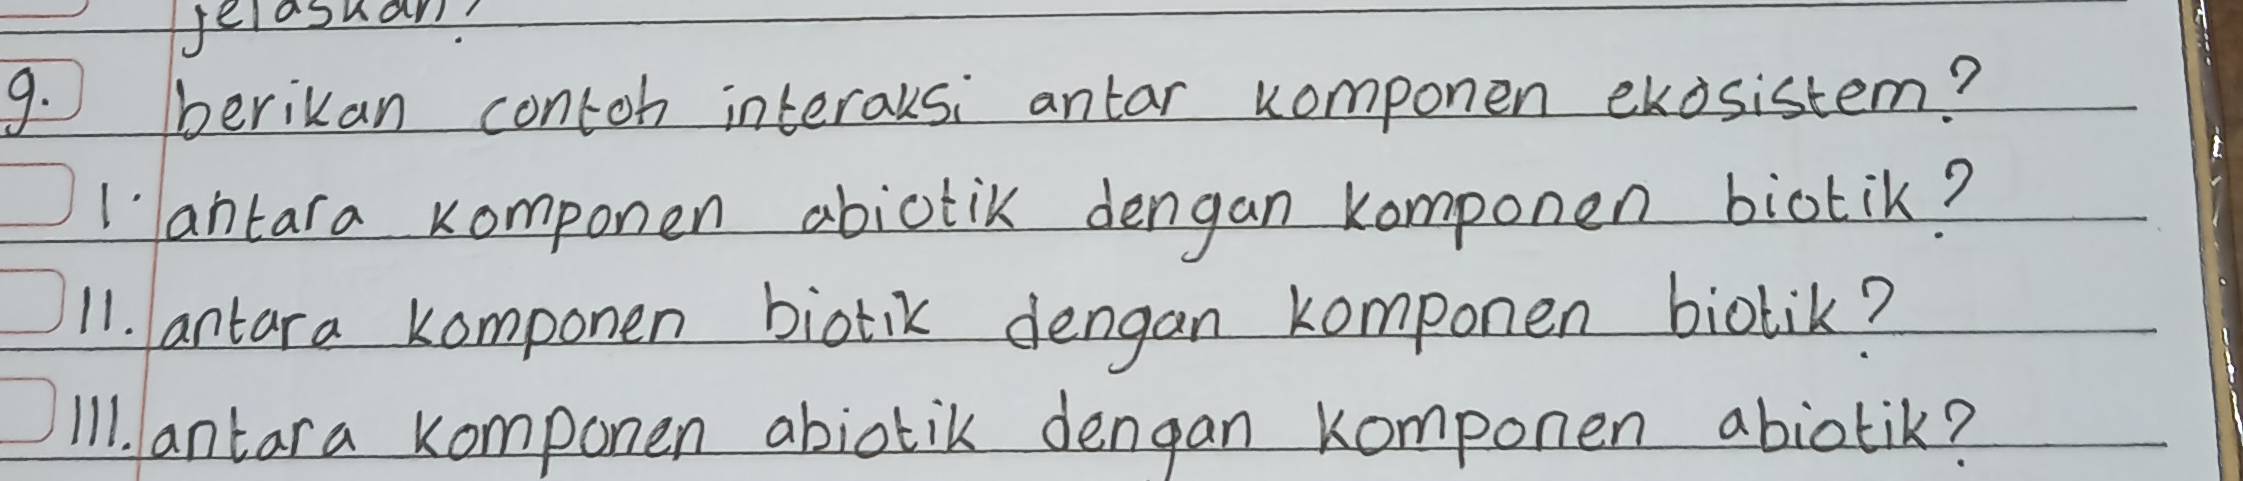 jelaskan?
9. berikan contoh interaksi antar komponen ekosistem?
I. antara komponen abiotik dengan komponen biotik?
II. antara komponen biotik dengan komponen biotik?
III. antara komponen abiotik dengan komponen abiotik?